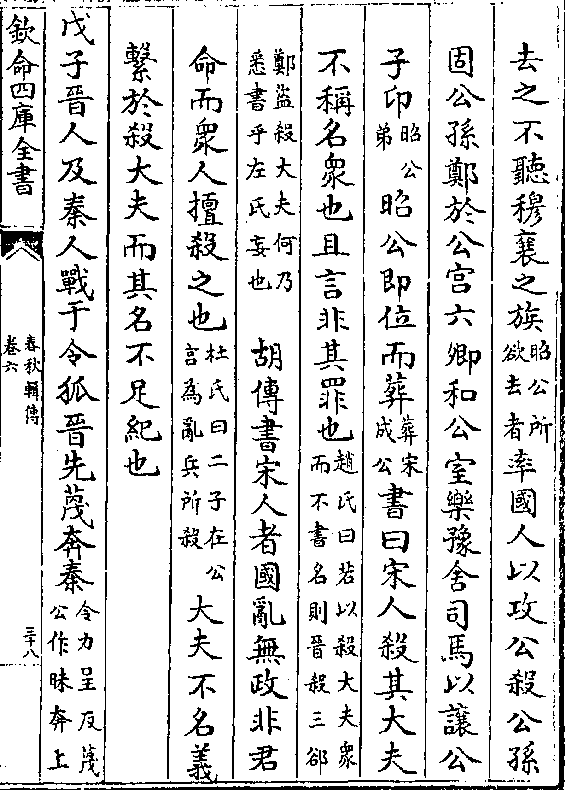 去之不聽穆襄之族昭公所欲去者率國人以攻公殺公孫
固公孫鄭於公宮六卿和公室樂豫舍司馬以讓公
子卬昭公弟昭公即位而葬葬宋成公書曰宋人殺其大夫
不稱名衆也且言非其罪也趙氏曰若以殺大夫衆而不書名則晉殺三郤
鄭盜殺大夫何乃悉書乎左氏妄也 胡傳書宋人者國亂無政非君
命而衆人擅殺之也杜氏曰二子在公言為亂兵所殺大夫不名義
繫於殺大夫而其名不足紀也
戊子晉人及秦人戰于令狐晉先蔑奔秦令力呈反蔑公作昧奔上
欽命四庫全書
春秋輯傳
卷六
三十八